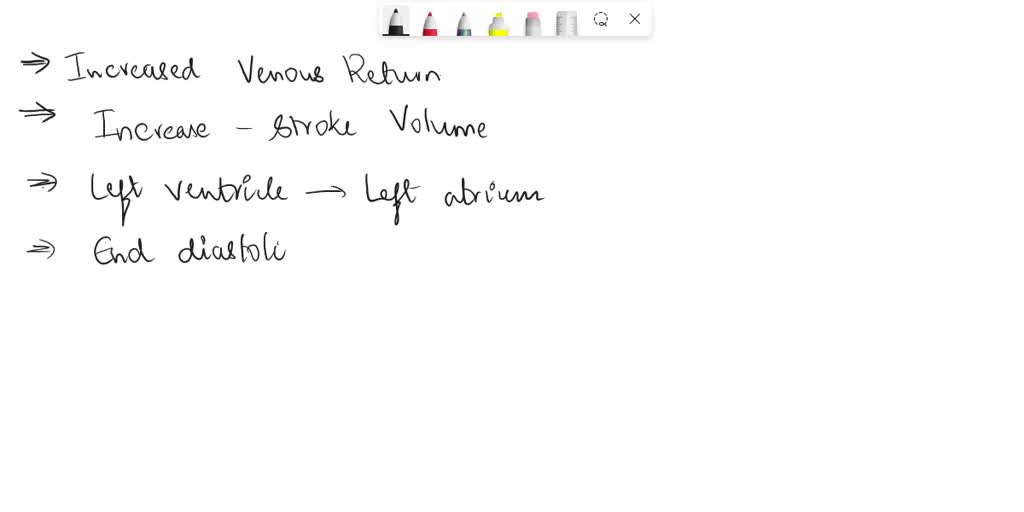 ⇒ Increased Venous Return
⇒ Increase - stroke Volume
⇒ Left ventricle → Left atrium
⇒ End diastoli